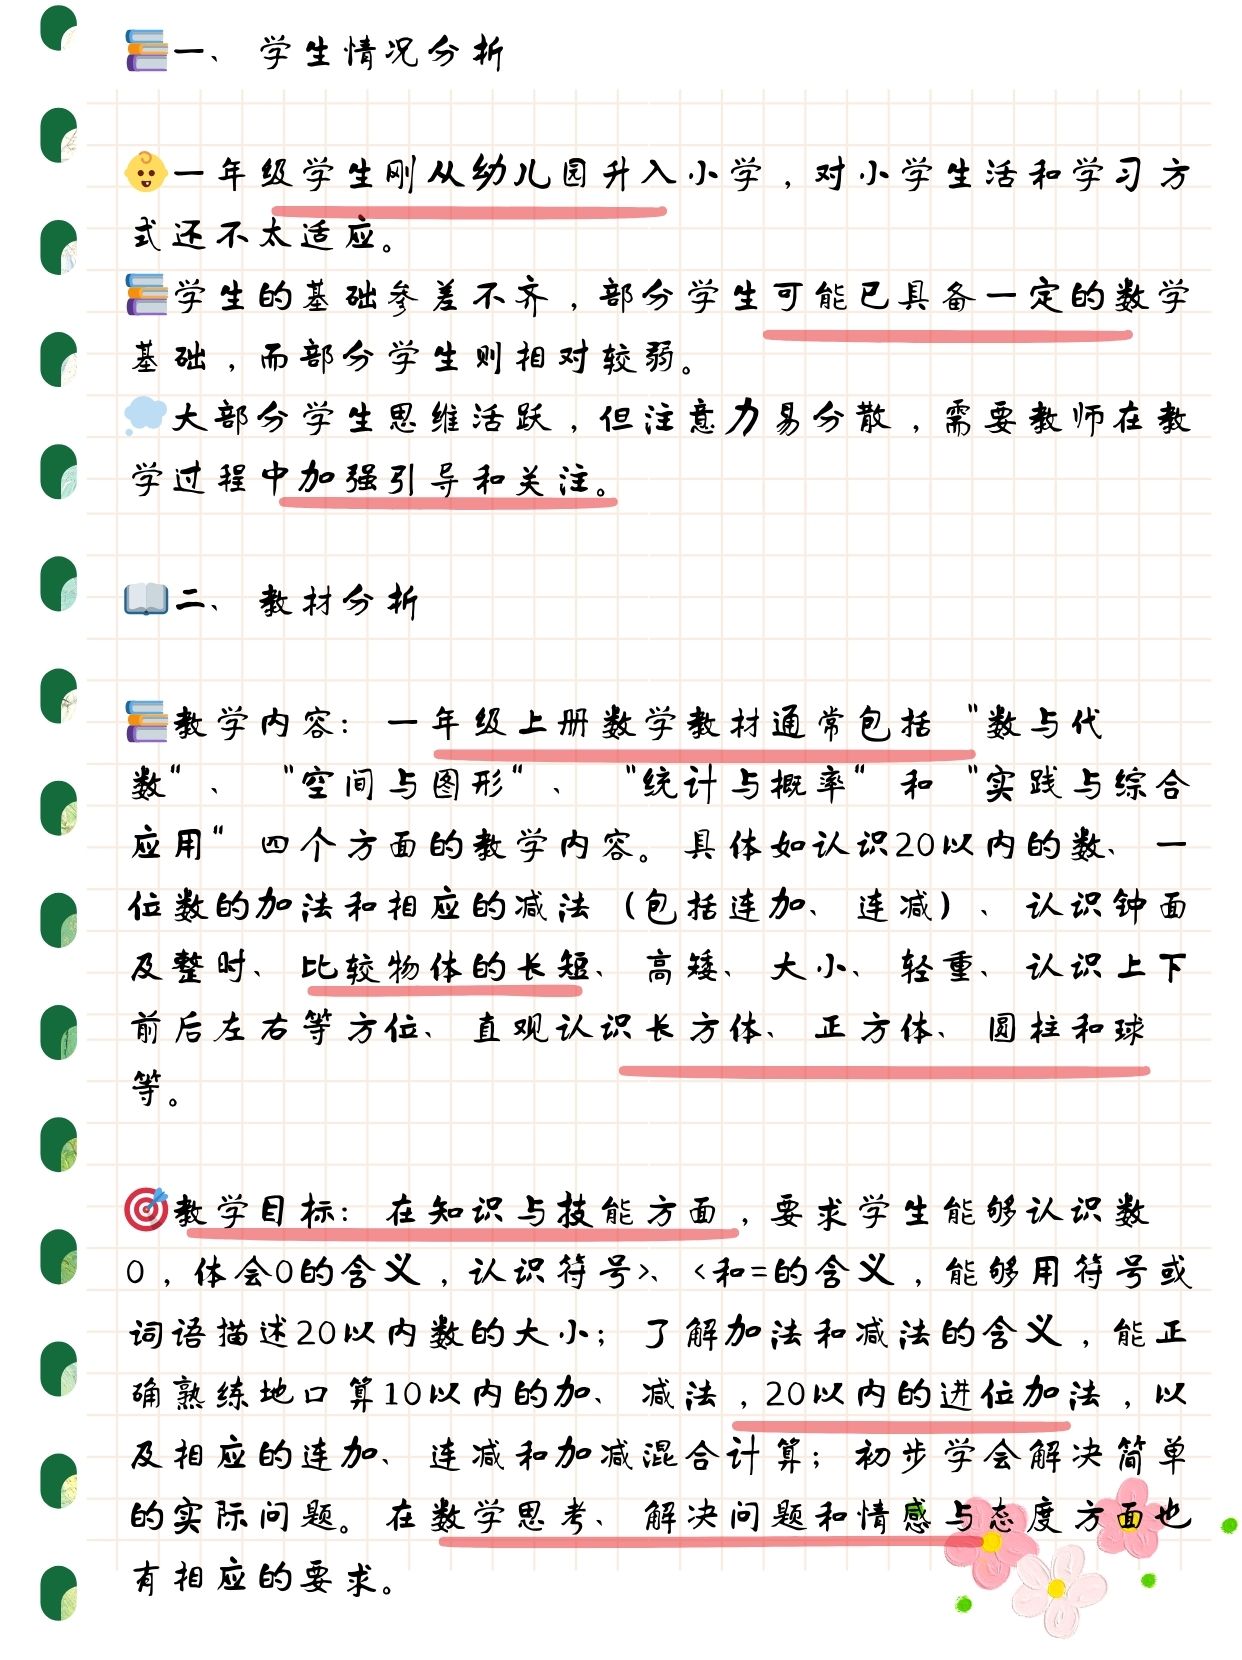 📚一、 学生情况分析
👶一年级学生刚从幼儿园升入小学，对小学生活和学习方
式还不太适应。
📚学生的基础参差不齐，部分学生可能已具备一定的数学
基础，而部分学生则相对较弱。
💭大部分学生思维活跃，但注意力易分散，需要教师在教
学过程中加强引导和关注。
📖二、 教材分析
📚教学内容： 一年级上册数学教材通常包括 “数与代
数”、 “空间与图形”、 “统计与概率” 和 “实践与综合
应用” 四个方面的教学内容。具体如认识20以内的数、一
位数的加法和相应的减法（包括连加、连减）、认识钟面
及整时、比较物体的长短、高矮、大小、轻重、认识上下
前后左右等方位、直观认识长方体、正方体、圆柱和球
等。
🎯教学目标： 在知识与技能方面，要求学生能够认识数
0，体会0的含义，认识符号>、<和=的含义，能够用符号或
词语描述20以内数的大小；了解加法和减法的含义，能正
确熟练地口算10以内的加、减法，20以内的进位加法，以
及相应的连加、连减和加减混合计算；初步学会解决简单
的实际问题。在数学思考、解决问题和情感与态度方面也
有相应的要求。